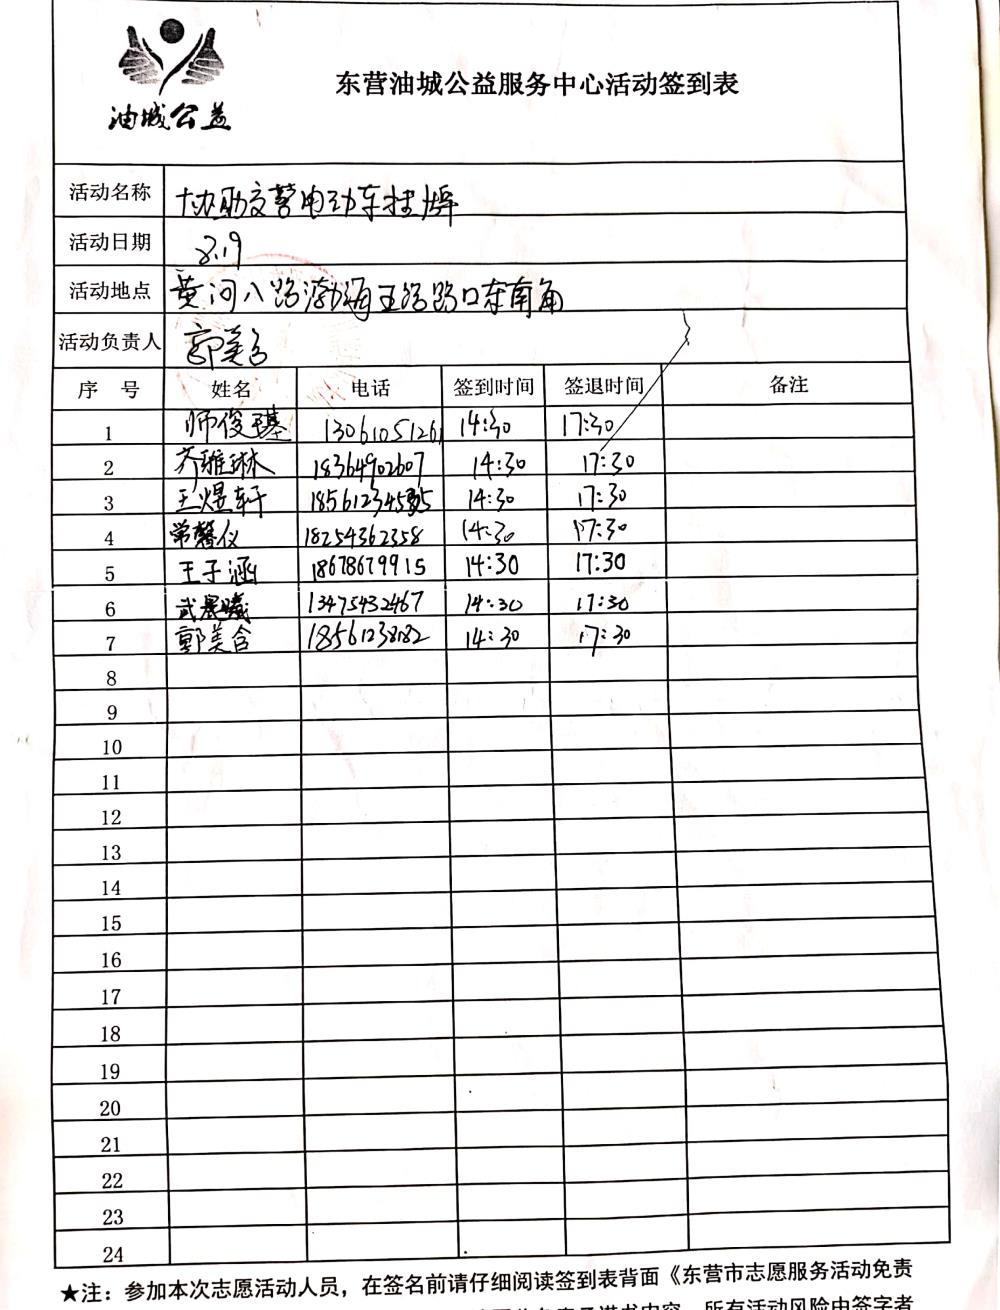 油城公益
东营油城公益服务中心活动签到表
活动名称 协助交警电动车挂牌
活动日期 8.19
活动地点 黄河八路渤海五路路口东南角
活动负责人 郭美含
序 号 姓名 电话 签到时间 签退时间 备注
1 师俊基 13061051261 14:30 17:30
2 齐雅琳 18364902607 14:30 17:30
3 王煜轩 14:30 17:30
4 常馨仪 18254362358 14:30 17:30
5 王子涵 18678679915 14:30 17:30
6 武晨曦 13475432467 14:30 17:30
7 郭美含 18561238182 14:30 17:30
8
9
10
11
12
13
14
15
16
17
18
19
20
21
22
23
24
★注：参加本次志愿活动人员，在签名前请仔细阅读签到表背面《东营市志愿服务活动免责
承诺书内容，所有活动风险由签字者